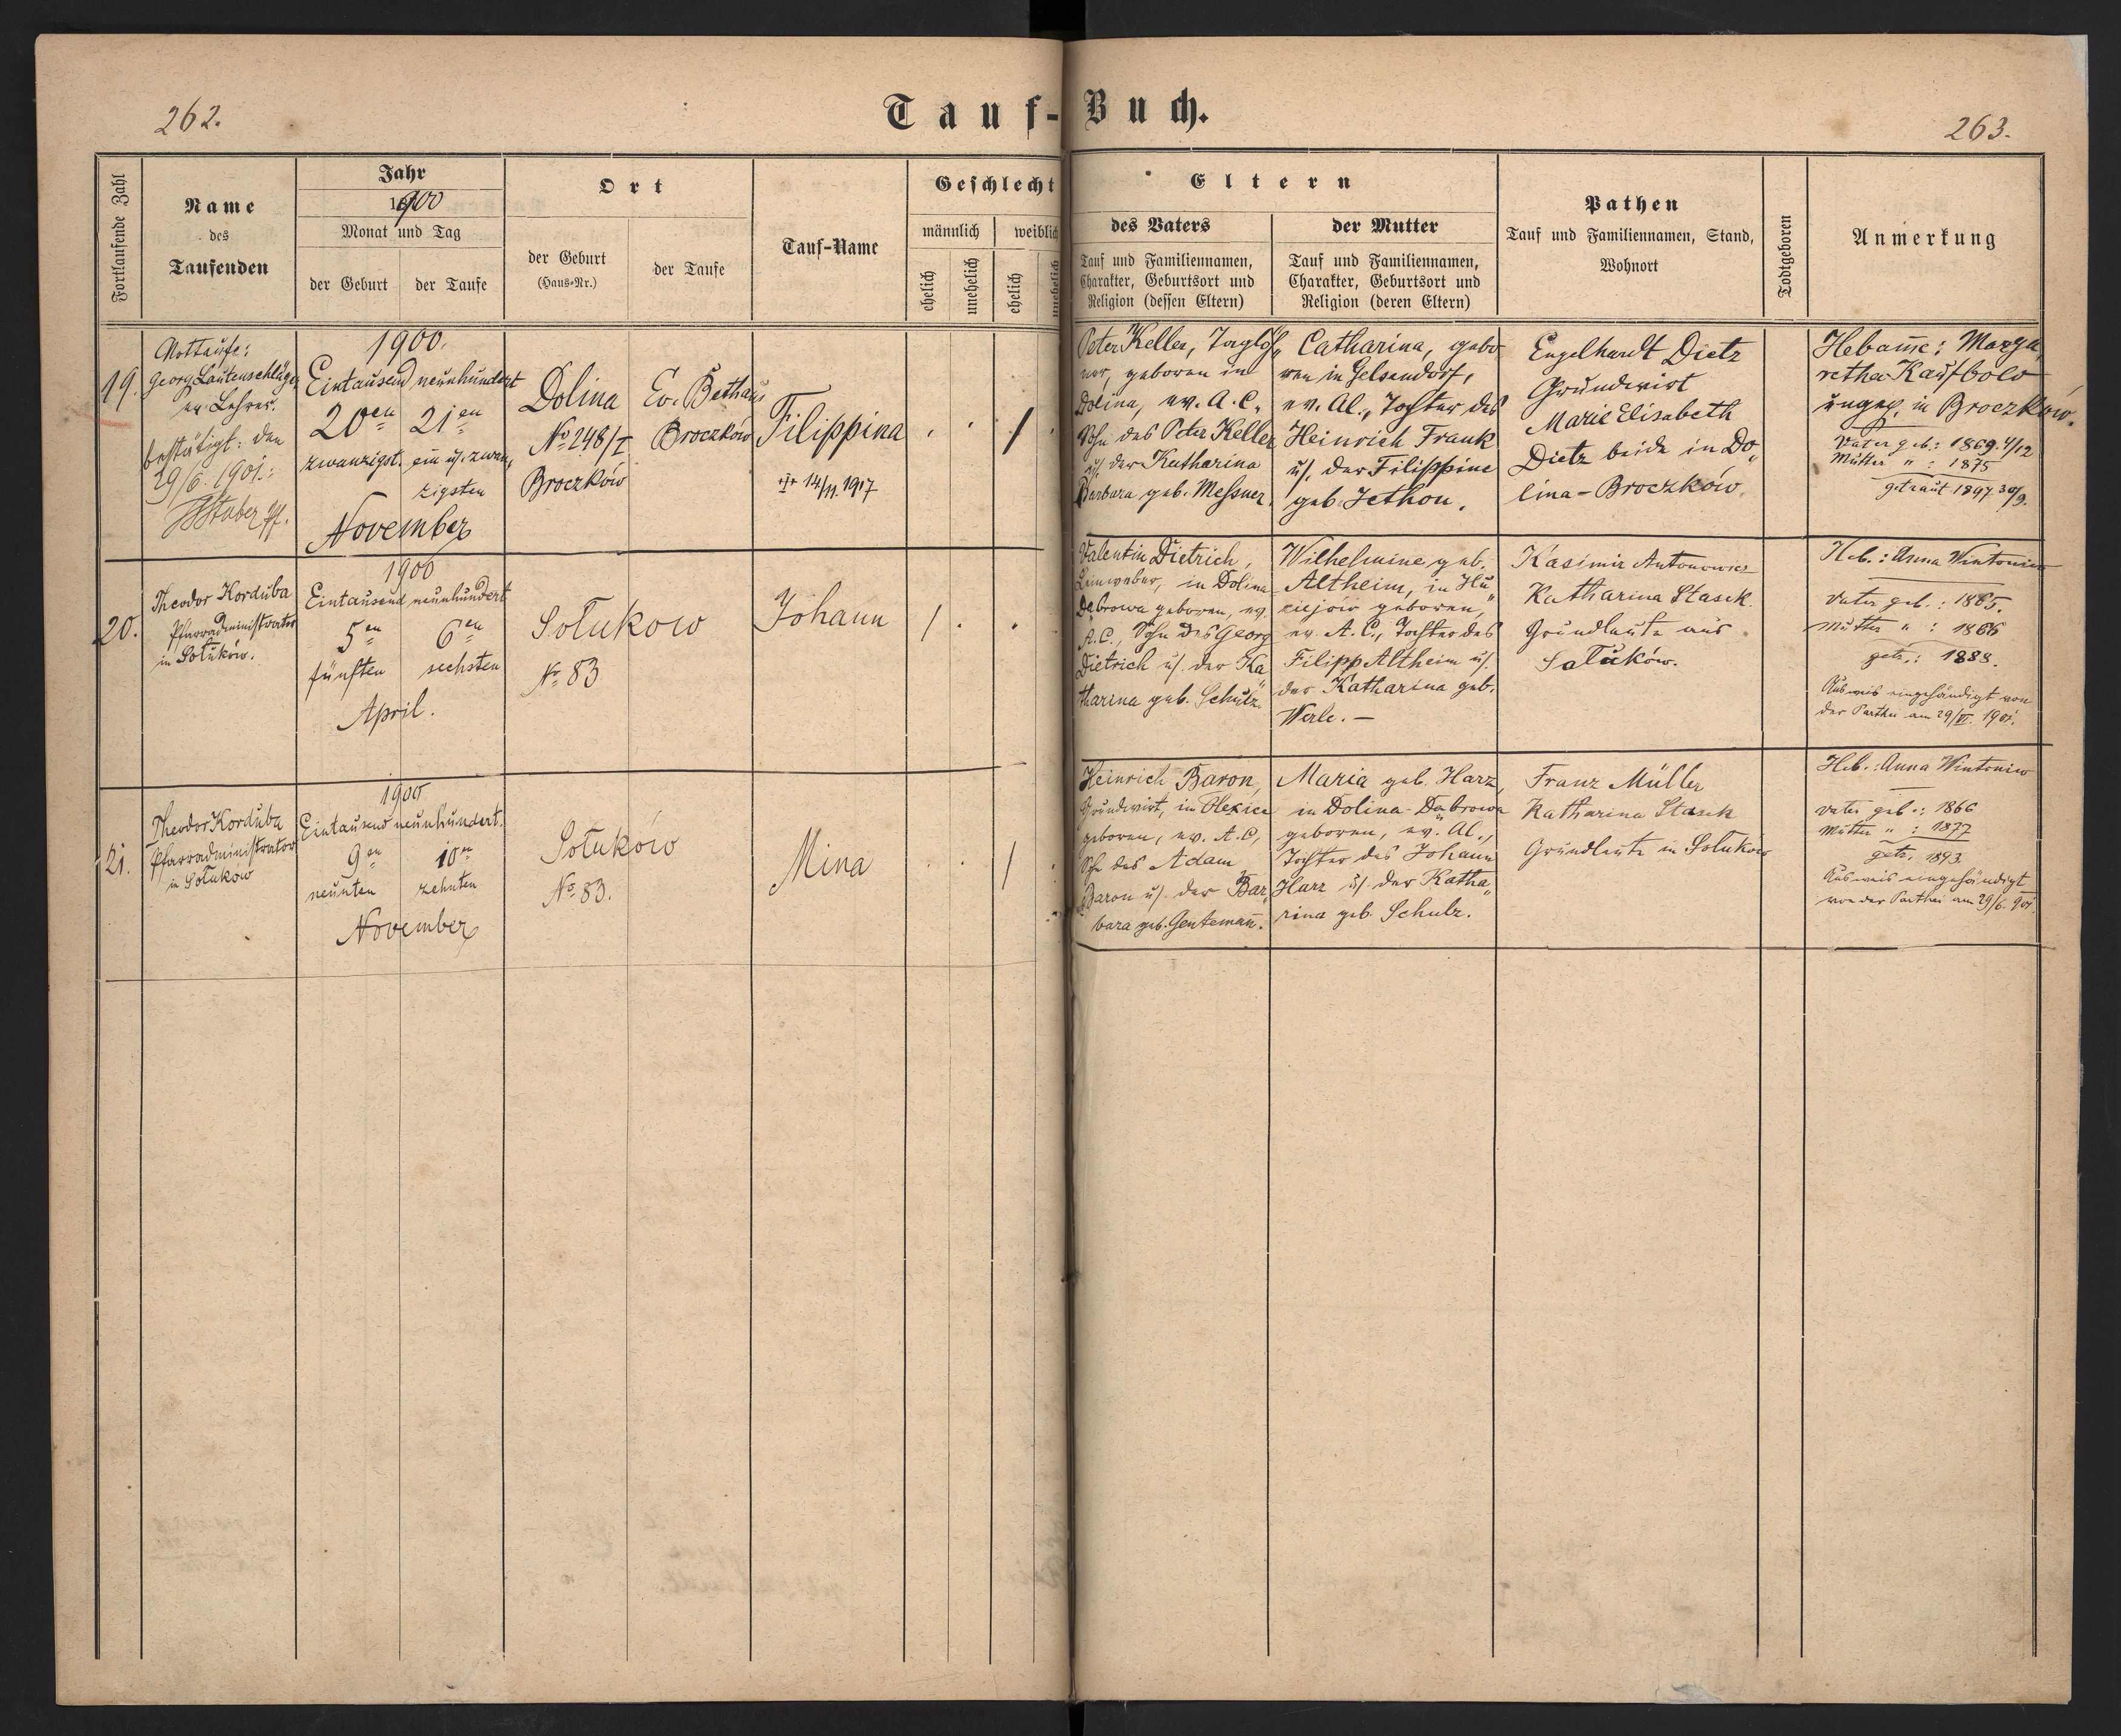 262.
Tauf-Buch.
263.
Fortlaufende Zahl
Name
des
Taufenden
Jahr
1900
Monat und Tag
der Geburt
der Taufe
Ort
der Geburt
(Haus-Nr.)
der Taufe
Tauf-Name
Geschlecht
männlich
weiblich
ehelich
unehelich
ehelich
unehelich
Eltern
des Vaters
Tauf und Familiennamen,
Charakter, Geburtsort und
Religion (dessen Eltern)
der Mutter
Tauf und Familiennamen,
Charakter, Geburtsort und
Religion (deren Eltern)
Pathen
Tauf und Familiennamen, Stand,
Wohnort
Todtgeboren
Anmerkung
19.
Nottaufe:
Georg Lautenschläger
ev. Lehrer.
bestätigt: den
29/6. 1901.:
Stuber Pf.
1900.
Eintausend neunhundert
20en 21en
zwanzigst. ein u. zwan„
zigsten
November
Dolina
No 248/I
Broczków
Ev. Bethaus
Broczków
Filippina
14/11. 1917
. . / .
Peter Keller, Taglöh„
ner, geboren in
Dolina, ev. A. C.,
Sohn des Peter Keller
u. der Katharina
Barbara geb. Messner.
Catharina, gebo
ren in Gelsendorf,
ev. Al., Tochter des
Heinrich Frank
u. der Filippine
geb. Jethon.
Engelhardt Dietz
Grundwirt
Marie Elisabeth
Dietz beide in Do„
lina-Broczków.
Hebamme: Marga„
retha Kaufhold
ungep. in Broczków.
Vater geb.: 1869. 4/12
Mutter " : 1875
getraut 1897 30/9.
20.
Theodor Korduba
Pfarradministrator
in Sołuków.
1900
Eintausend neunhundert
5en 6en
fünften sechsten
April.
Sołukow
No 83
Johann
/ . .
Valentin Dietrich,
Leinweber, in Dolina
Dąbrowa geboren, ev.
A. C., Sohn des Georg
Dietrich u. der Ka„
tharina geb. Schulz.
Wilhelmine geb.
Altheim, in Hu„
ziejow geboren,
ev. A. C., Tochter des
Filipp Altheim u.
der Katharina geb.
Werle. —
Kasimir Antonowicz
Katharina Stasek
Grundleute aus
Sołuków.
Heb.: Anna Wintoniw
Vater geb.: 1865.
Mutter " : 1866
getr.: 1888.
Ausweis eingehändigt von
der Parthei am 29/VI. 1901.
21.
Theodor Korduba
Pfarradministrator
in Sołukow
1900
Eintausend neunhundert.
9en 10en
neunten zehnten
November
Sołuków
No 83.
Mina
. . / .
Heinrich Baron,
Grundwirt, in Olexice
geboren, ev. A. C,
Sohn des Adam
Baron u. der Bar„
bara geb. Gentemann.
Maria geb. Harz,
in Dolina-Dąbrowa
geboren, ev. Al.,
Tochter des Johann
Harz u. der Katha„
rina geb. Schulz.
Franz Müller
Katharina Stasek
Grundleute in Sołuków
Heb.: Anna Wintoniw
Vater geb.: 1866
Mutter " : 1877
getr. 1893.
Ausweis eingehändigt
von der Parthei am 29/6. 901.